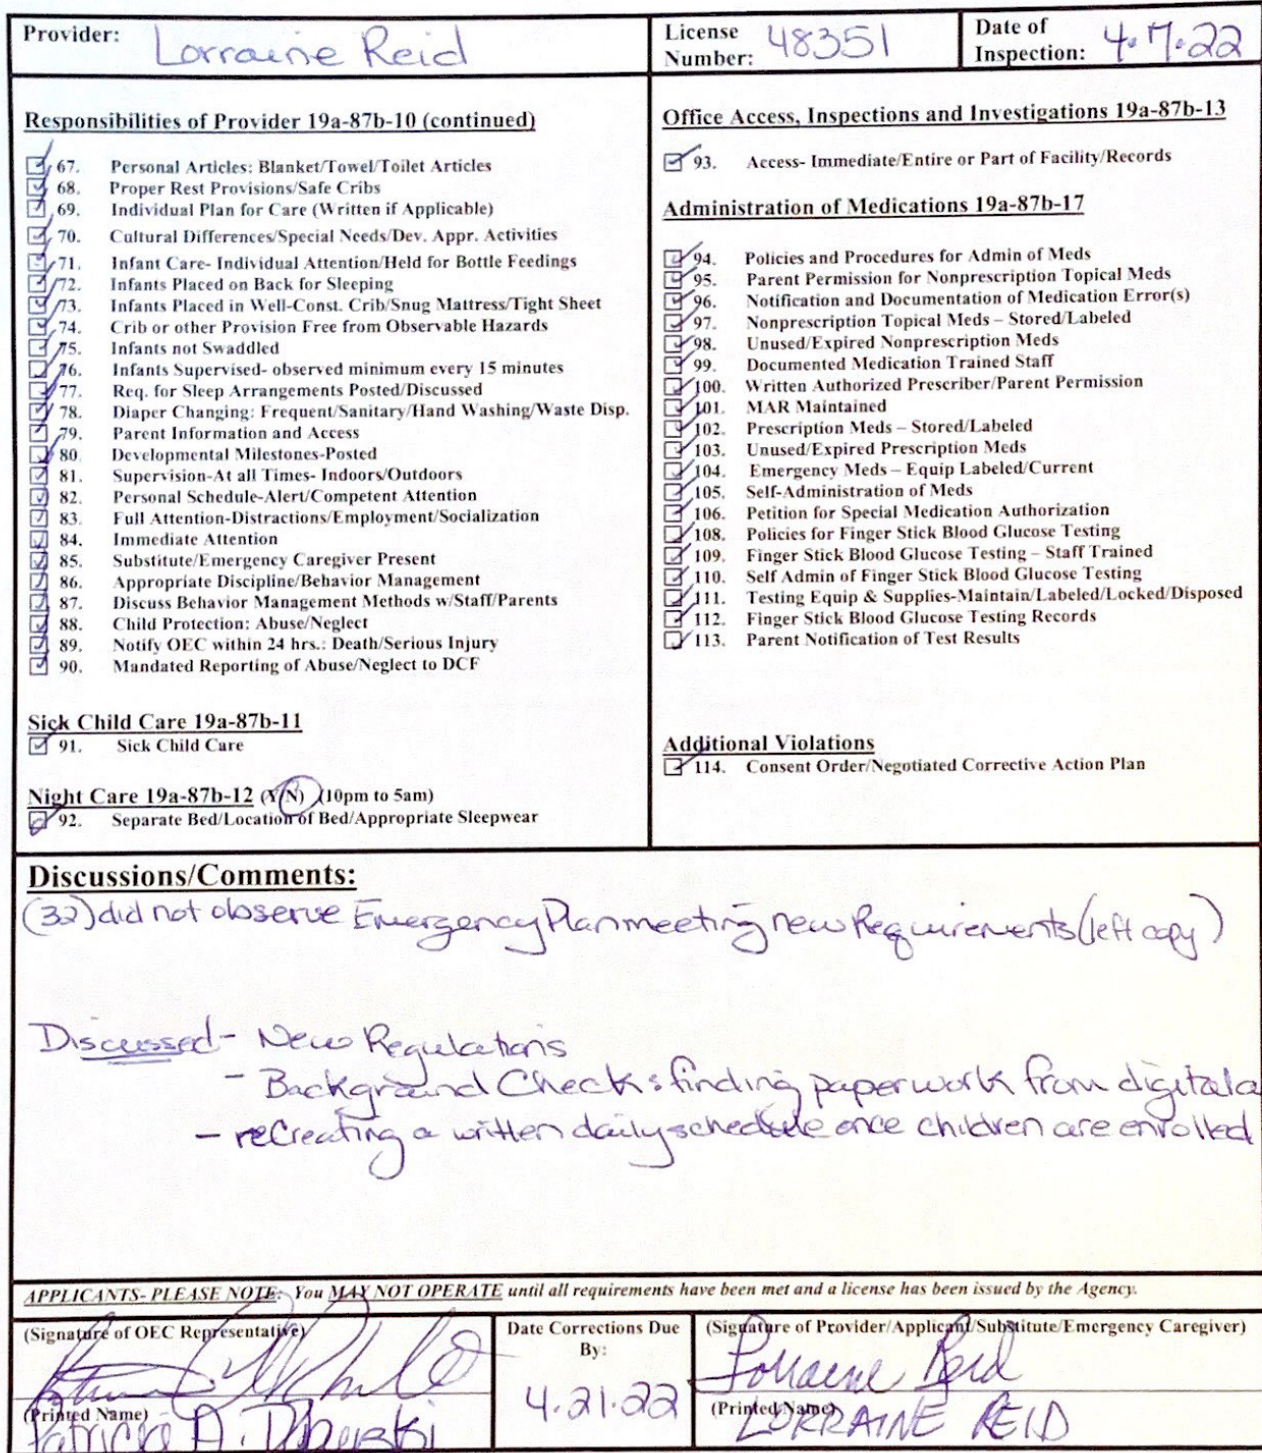 Provider: Lorraine Reid
License Number: 48351
Date of Inspection: 4.7.22
Responsibilities of Provider 19a-87b-10 (continued)
67. Personal Articles: Blanket/Towel/Toilet Articles
68. Proper Rest Provisions/Safe Cribs
69. Individual Plan for Care (Written if Applicable)
70. Cultural Differences/Special Needs/Dev. Appr. Activities
71. Infant Care- Individual Attention/Held for Bottle Feedings
72. Infants Placed on Back for Sleeping
73. Infants Placed in Well-Const. Crib/Snug Mattress/Tight Sheet
74. Crib or other Provision Free from Observable Hazards
75. Infants not Swaddled
76. Infants Supervised- observed minimum every 15 minutes
77. Req. for Sleep Arrangements Posted/Discussed
78. Diaper Changing: Frequent/Sanitary/Hand Washing/Waste Disp.
79. Parent Information and Access
80. Developmental Milestones-Posted
81. Supervision-At all Times- Indoors/Outdoors
82. Personal Schedule-Alert/Competent Attention
83. Full Attention-Distractions/Employment/Socialization
84. Immediate Attention
85. Substitute/Emergency Caregiver Present
86. Appropriate Discipline/Behavior Management
87. Discuss Behavior Management Methods w/Staff/Parents
88. Child Protection: Abuse/Neglect
89. Notify OEC within 24 hrs.: Death/Serious Injury
90. Mandated Reporting of Abuse/Neglect to DCF
Sick Child Care 19a-87b-11
91. Sick Child Care
Night Care 19a-87b-12 (Y/N) (10pm to 5am)
92. Separate Bed/Location of Bed/Appropriate Sleepwear
Office Access, Inspections and Investigations 19a-87b-13
93. Access- Immediate/Entire or Part of Facility/Records
Administration of Medications 19a-87b-17
94. Policies and Procedures for Admin of Meds
95. Parent Permission for Nonprescription Topical Meds
96. Notification and Documentation of Medication Error(s)
97. Nonprescription Topical Meds – Stored/Labeled
98. Unused/Expired Nonprescription Meds
99. Documented Medication Trained Staff
100. Written Authorized Prescriber/Parent Permission
101. MAR Maintained
102. Prescription Meds – Stored/Labeled
103. Unused/Expired Prescription Meds
104. Emergency Meds – Equip Labeled/Current
105. Self-Administration of Meds
106. Petition for Special Medication Authorization
108. Policies for Finger Stick Blood Glucose Testing
109. Finger Stick Blood Glucose Testing – Staff Trained
110. Self Admin of Finger Stick Blood Glucose Testing
111. Testing Equip & Supplies-Maintain/Labeled/Locked/Disposed
112. Finger Stick Blood Glucose Testing Records
113. Parent Notification of Test Results
Additional Violations
114. Consent Order/Negotiated Corrective Action Plan
Discussions/Comments:
(32) did not observe Emergency Plan meeting new Requirements (left copy)
Discussed - New Regulations
- Background Check: finding paperwork from digital
- reCreating a written daily schedule once children are enrolled
APPLICANTS- PLEASE NOTE: You MAY NOT OPERATE until all requirements have been met and a license has been issued by the Agency.
(Signature of OEC Representative)
(Printed Name)
Patricia A.
Date Corrections Due By:
4.21.22
(Signature of Provider/Applicant/Substitute/Emergency Caregiver)
Lorraine Reid
(Printed Name)
LORRAINE REID